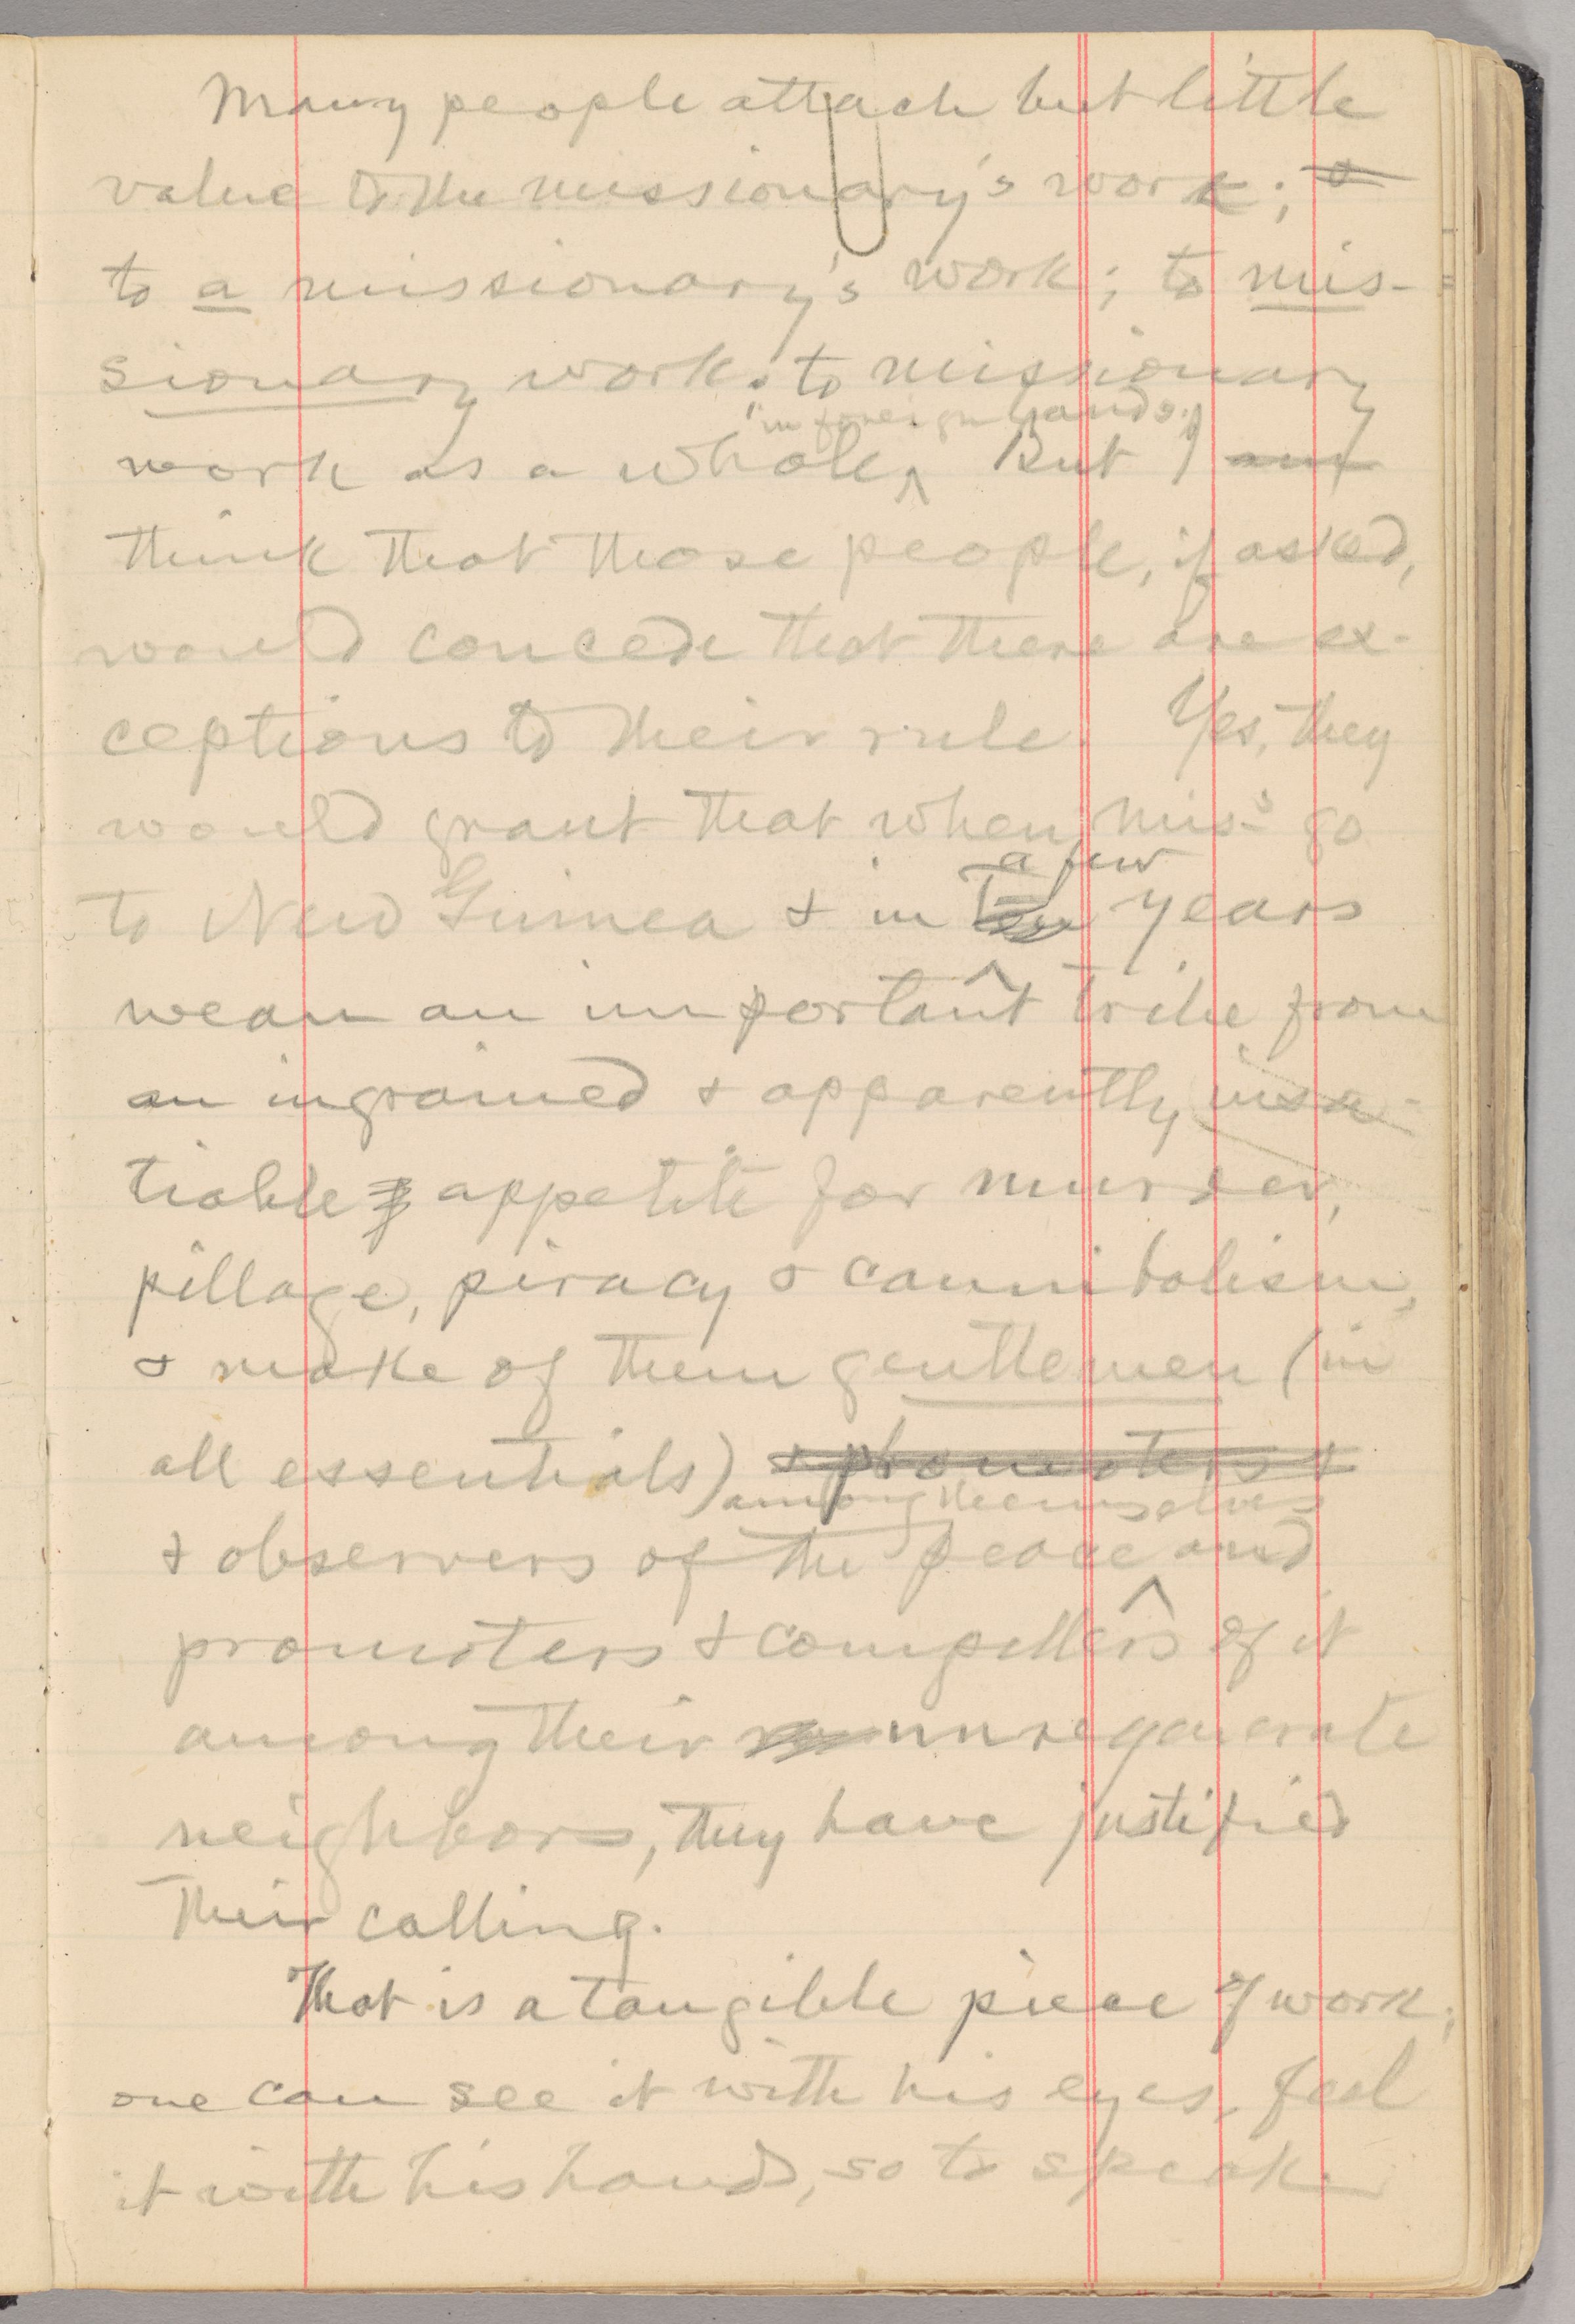 Many people attach but little
value to the missionary's work; &
to a missionary's work; to mis-
sionary work; to missionary
in foreign lands.
work as a whole, But I am
think that those people, if asked,
would concede that there are ex-
ceptions to their rule. Yes, they
would grant that when mis-s go
a few
to New Guinea & in ten years
wean an important tribe from
an ingrained & apparently insa-
tiable appetite for murder,
pillage, piracy & cannibalism,
& make of them gentlemen (in
all essentials) & promoters &
among themselves
& observers of the peace and
promoters & compellers of it
among their unregenerate
neighbors, they have justified
their calling.
That is a tangible piece of work;
one can see it with his eyes, feel
it with his hands, so to speak